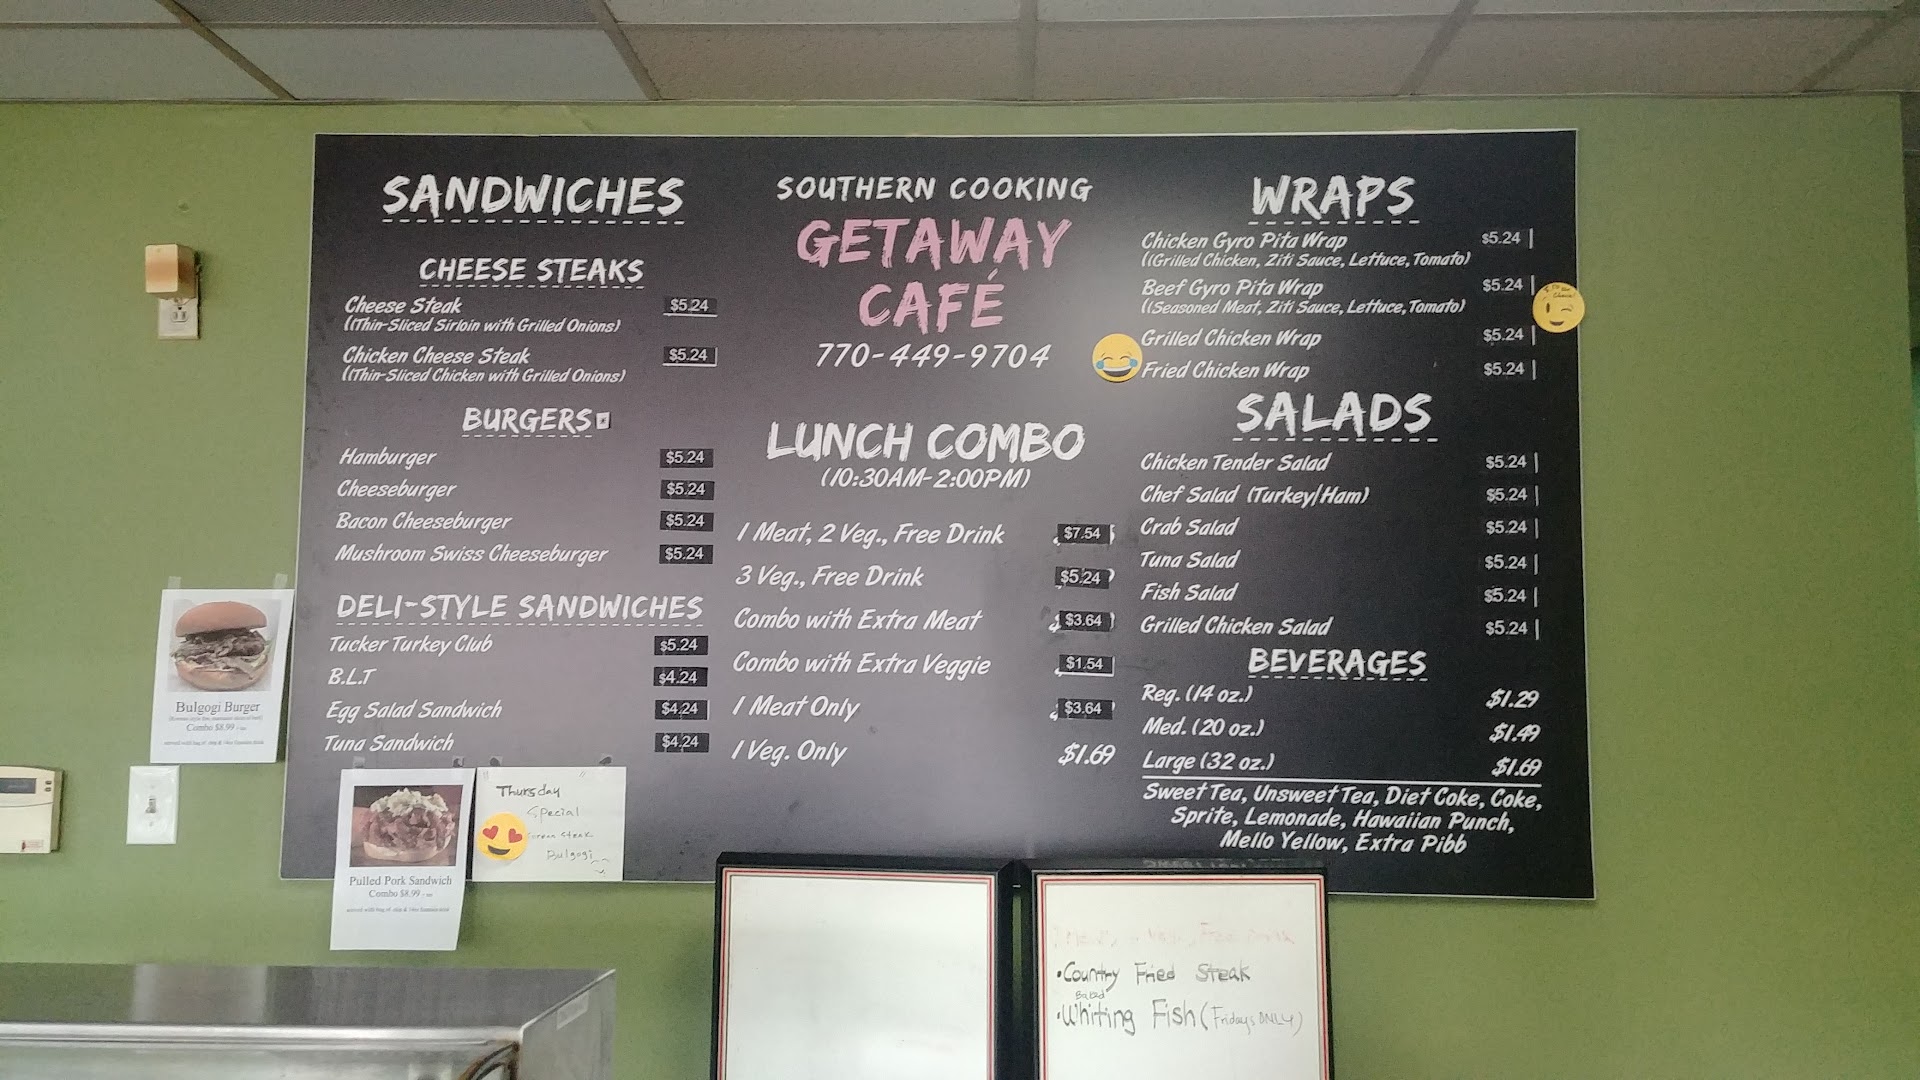 SANDWICHES
CHEESE STEAKS
Cheese Steak $5.24
((Thin-Sliced Sirloin with Grilled Onions)
Chicken Cheese Steak $5.24
((Thin-Sliced Chicken with Grilled Onions)
BURGERS
Hamburger $5.24
Cheeseburger $5.24
Bacon Cheeseburger $5.24
Mushroom Swiss Cheeseburger $5.24
DELI-STYLE SANDWICHES
Tucker Turkey Club $5.24
B.L.T $4.24
Egg Salad Sandwich $4.24
Tuna Sandwich $4.24
SOUTHERN COOKING
GETAWAY
CAFÉ
770-449-9704
LUNCH COMBO
(10:30AM-2:00PM)
1 Meat, 2 Veg., Free Drink $7.54
3 Veg., Free Drink $5.24
Combo with Extra Meat $3.64
Combo with Extra Veggie $1.54
1 Meat Only $3.64
1 Veg. Only $1.69
WRAPS
Chicken Gyro Pita Wrap $5.24
((Grilled Chicken, Ziti Sauce, Lettuce, Tomato)
Beef Gyro Pita Wrap $5.24
((Seasoned Meat, Ziti Sauce, Lettuce, Tomato)
Grilled Chicken Wrap $5.24
Fried Chicken Wrap $5.24
SALADS
Chicken Tender Salad $5.24
Chef Salad (Turkey/Ham) $5.24
Crab Salad $5.24
Tuna Salad $5.24
Fish Salad $5.24
Grilled Chicken Salad $5.24
BEVERAGES
Reg. (14 oz.) $1.29
Med. (20 oz.) $1.49
Large (32 oz.) $1.69
Sweet Tea, Unsweet Tea, Diet Coke, Coke,
Sprite, Lemonade, Hawaiian Punch,
Mello Yellow, Extra Pibb
Bulgogi Burger
Combo $8.99
Pulled Pork Sandwich
Combo $8.99
Thursday
Special
Steak
Bulgogi
•Country Fried Steak
Baked
•Whiting Fish (Fridays ONLY)